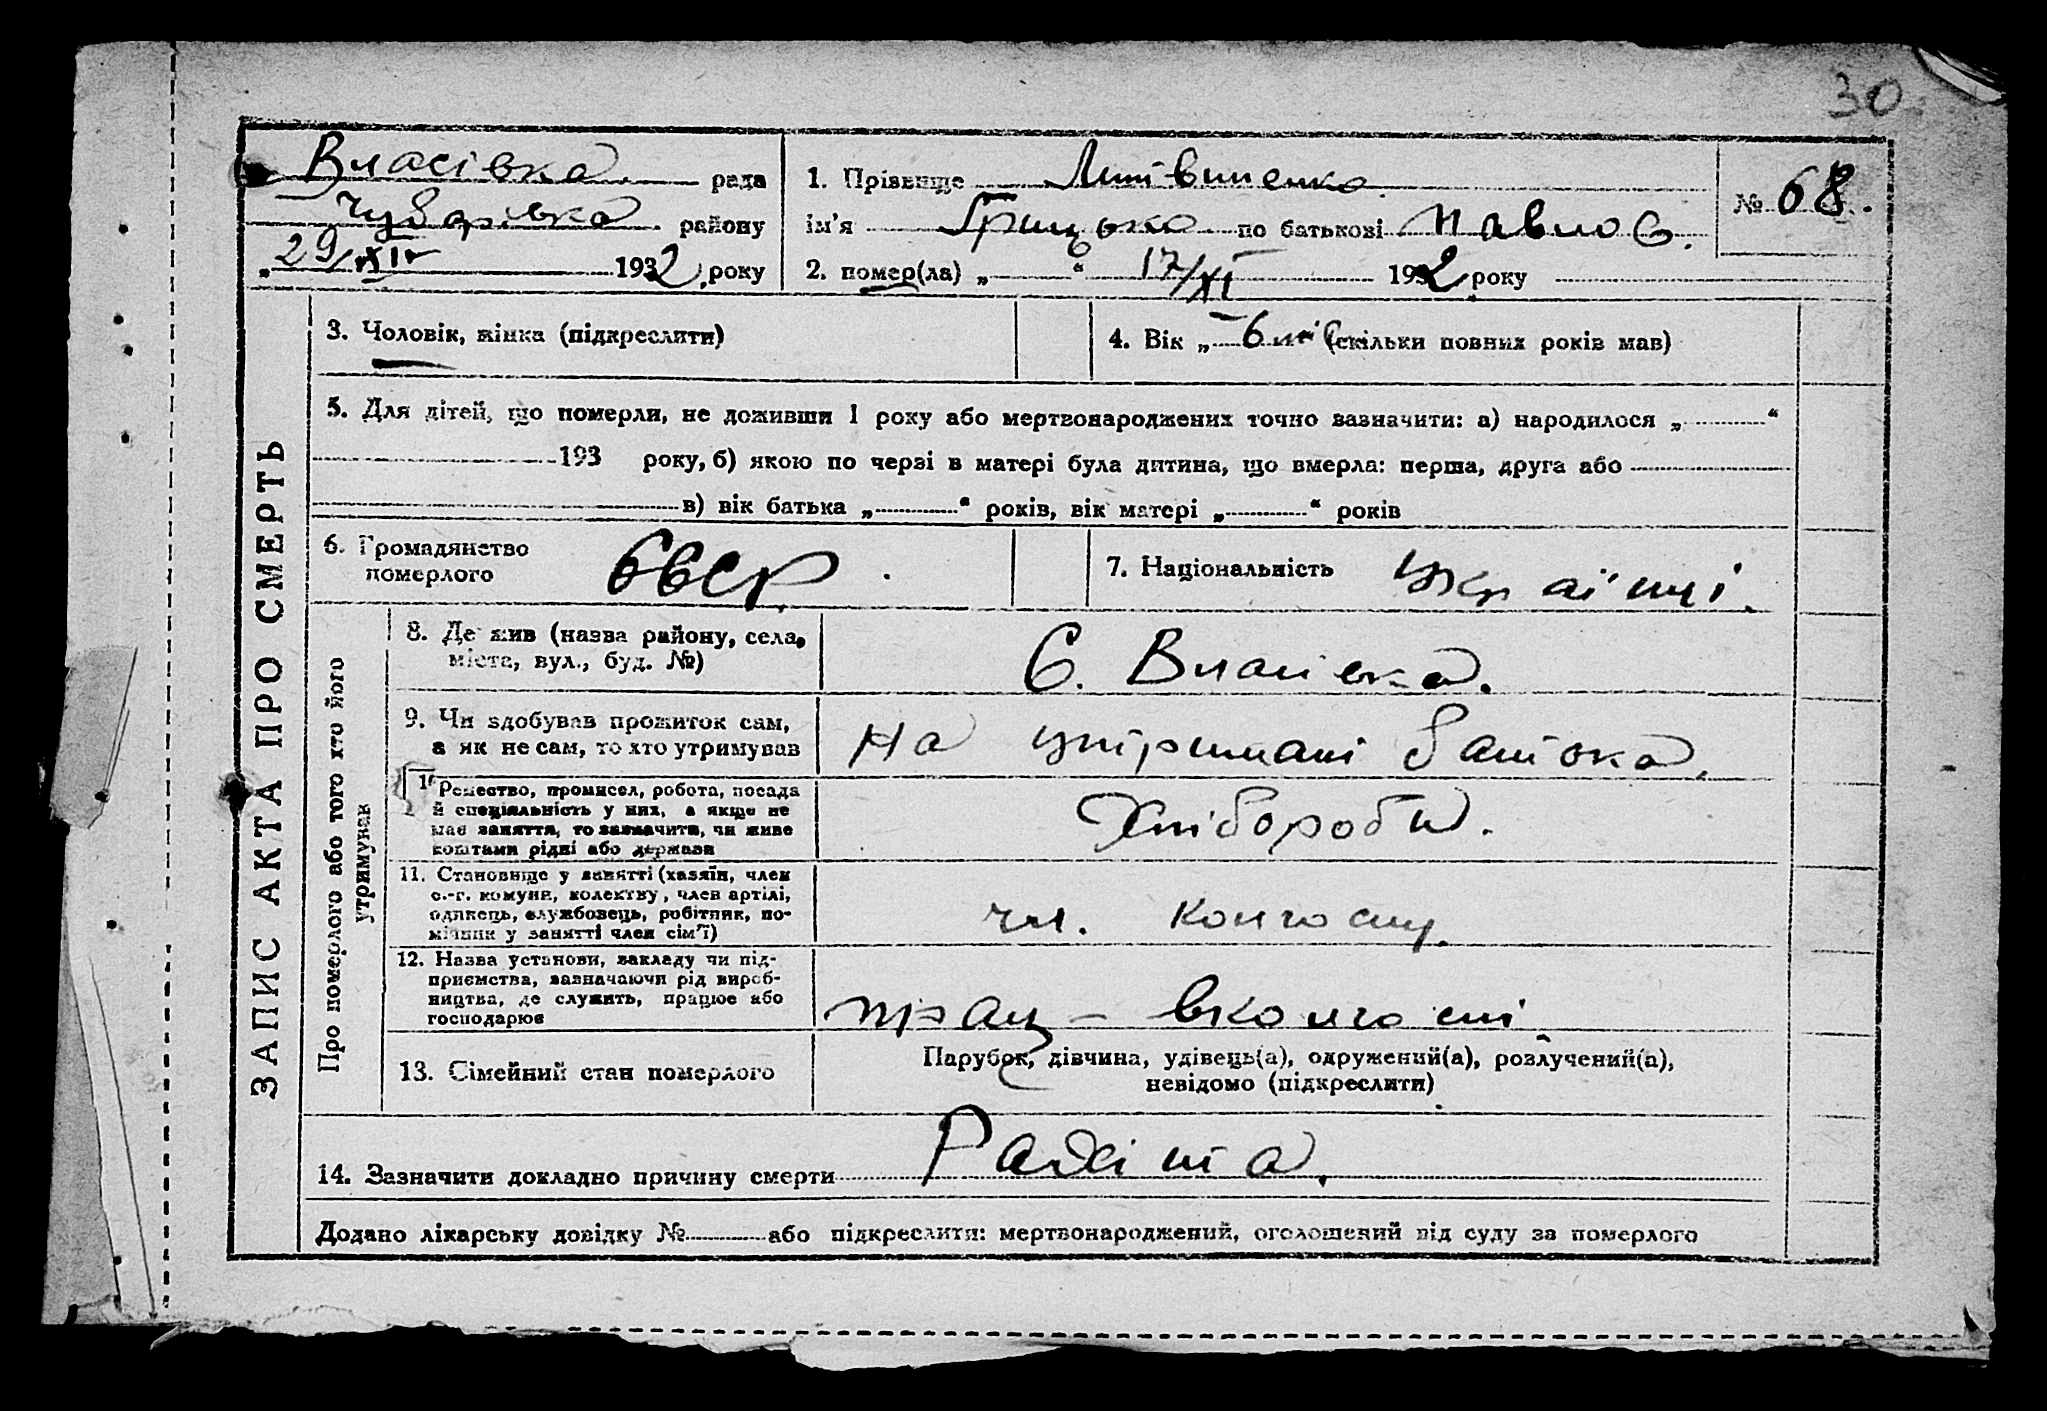 30
Власівка рада
Чубарівка району
„29/XII 1932 року
1. Прізвище Литвиненко
ім'я Грицько по батькові Павлов.
2. помер(ла) „ “ 17/XI 1932 року
№ 68.
ЗАПИС АКТА ПРО СМЕРТЬ
3. Чоловік, жінка (підкреслити)
4. Вік „ 6 (скільки повних років мав)
5. Для дітей, що померли, не доживши 1 року або мертвонароджених точно зазначити: а) народилося „ “
193 року, б) якою по черзі в матері була дитина, що вмерла: перша, друга або
в) вік батька „ “ років, вік матері „ “ років
6. Громадянство
померлого
7. Національність Українці.
Про померлого або того хто його
утримував
8. Де жив (назва району, села,
міста, вул., буд. №)
С. Власівка.
9. Чи здобував прожиток сам,
а як не сам, то хто утримував
На утримані батька.
10 Ремество, промисел, робота, посада
й спеціяльність у них, а якще не
має заняття, то зазначити, чи живе
коштами рідні або держави
Хлібороби.
11. Становище у занятті (хазяїн, член
с.-г. комуни, колектву, член артілі,
одинець, службовець, робітник, по-
мічник у занятті член сім'ї)
чл. колгоспу.
12. Назва установи, закладу чи під-
приємства, зазначаючи рід вироб-
ництва, де служить, працює або
господарює
прац – вколгоспі
13. Сімейний стан померлого
Парубок, дівчина, удівець(а), одружений(а), розлучений(а),
невідомо (підкреслити)
14. Зазначити докладно причину смерти
Додано лікарську довідку № або підкреслити: мертвонароджений, оголошений від суду за померлого